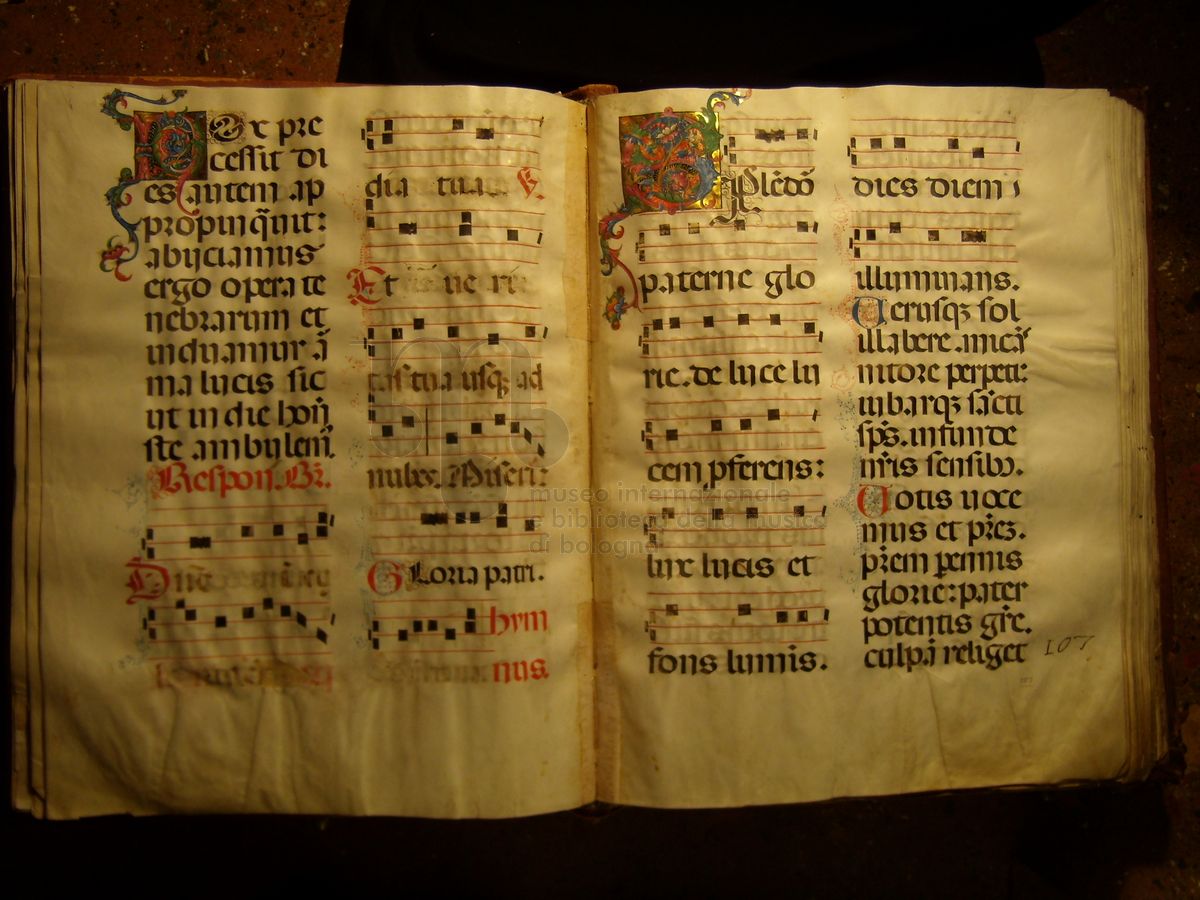 Nox pre
cessit di
es autem ap
propinq̄uit:
abijciamus
ergo opera te
nebrarum et
induamur ā
ma lucis sic
ut in die hon̄
ste ambulem̄.
Respon. Br̄.
Dn̄e
dia tua. V.
Et ue ri
tas tua usqꝫ ad
nubes. Miseri:
Gloria patri.
hym
nus.
Splēdō
paterne glo
rie. de luce lu
cem pferens:
lux lucis et
fons lumīs.
dies diem
illuminans.
Uerusqꝫ sol
illabere micās
nitore perpeti:
iubarqꝫ sācti
sp̄s. infunde
nr̄is sensibꝫ.
Uotis uoce
mus et pr̄ez.
pr̄em pennis
glorie: pater
potentis gr̄e.
culpā religet
107
museo internazionale
e biblioteca della musica
di bologna